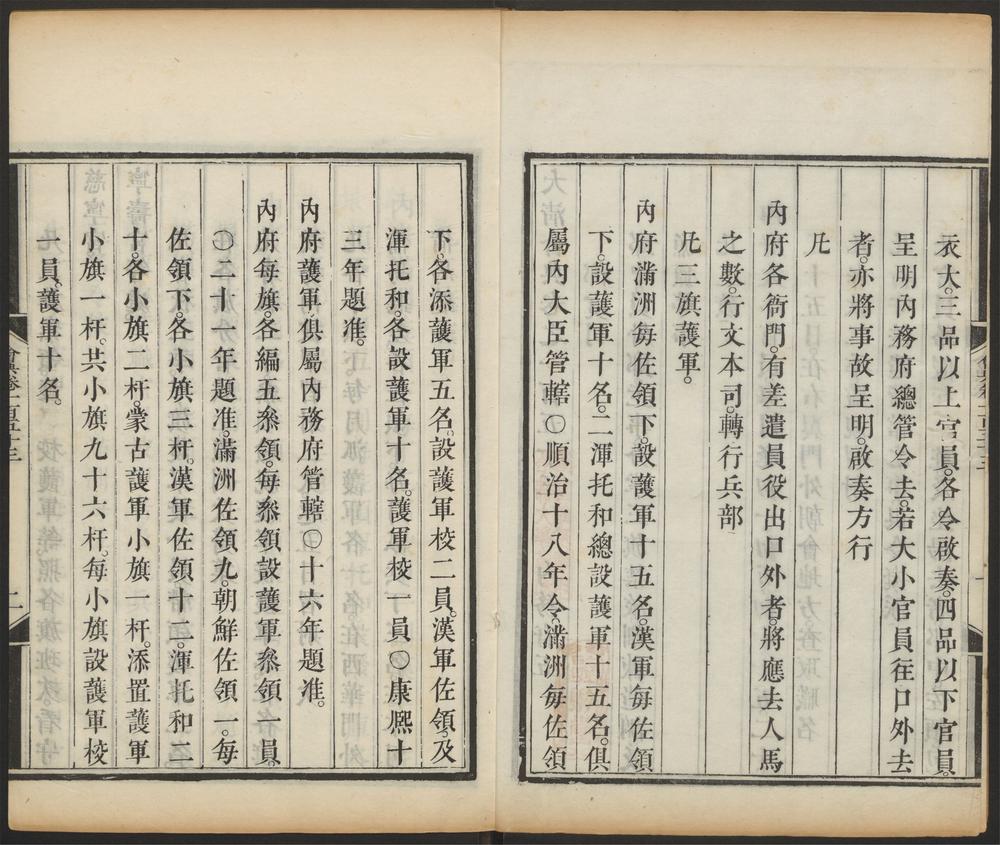 衣大。三品以上官員。各令啟奏。四品以下官員。
呈明內務府總管令去。若大小官員往口外去
者。亦將事故呈明。啟奏方行
凡
內府各衙門。有差遣員役出口外者。將應去人馬
之數。行文本司。轉行兵部
凡三旗護軍。
內府滿洲每佐領下。設護軍十五名。漢軍每佐領
下。設護軍十名。二渾托和總設護軍十五名。俱
屬內大臣管轄〇順治十八年令。滿洲每佐領
下。各添護軍五名。設護軍校二員。漢軍佐領。及
渾托和。各設護軍十名。護軍校一員〇康熙十
三年題准。
內府護軍。俱屬內務府管轄〇十六年題准。
內府每旗。各編五叅領。每叅領設護軍叅領一員。
〇二十一年題准。滿洲佐領九。朝鮮佐領一。每
佐領下。各小旗三杆。漢軍佐領。十二。渾托和二
十。各小旗二杆。蒙古護軍小旗一杆。添置護軍
小旗一杆。共小旗九十六杆。每小旗設護軍校
一員。護軍十名。
二